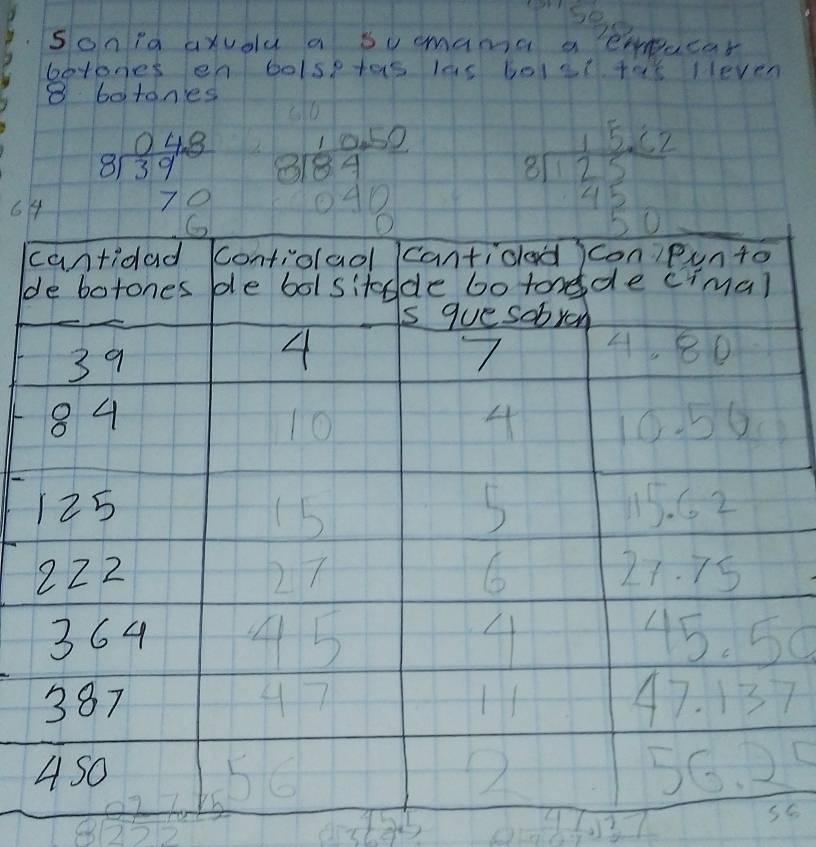 Sonia axuda a su mama a empacar
botones en bolsitas las bolsitas lleven
8 botones
04.8 10.50 15.62
8 39 8 84 8 125
64 70 040 45
6 0 50
cantidad de botones | Contidad de bolsitas | cantidad de botones que sobran | Con punto decimal
39 4 7 4.80
84 10 4 10.50
125 15 5 15.62
222 27 6 27.75
364 45 4 45.50
387 47 11 47.137
450 56 2 56.25
027.75
8 222
56